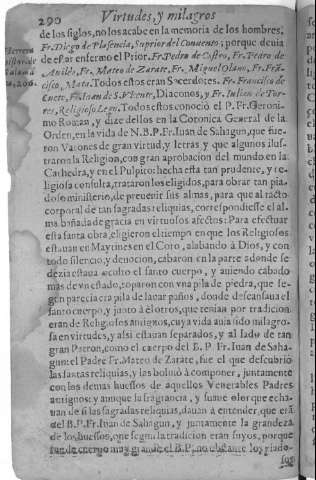 290 Virtudes, y milagros
de los siglos, no los acabe en la memoria de los hombres;
Fr. Diego de Plasencia, Suprior del Conuento; porque deuia
de estar enfermo el Prior. Fr. Pedro de Castro, Fr. Pedro de
Auilès, Fr. Mateo de Zarate, Fr. Miguel Olano, Fr. Fran-
cisco, Mata. Todos estos eran Sacerdotes. Fr. Francisco de
S. Vicente, Diaconos, y Fr. Iulian de Tor-
res, Religioso Lego. Todos estos conoció el P. Fr. Geroni-
mo Roman, y dize dellos en la Coronica General de la
Orden, en la vida de N. B. P. Fr. Iuan de Sahagun, que fue-
ron Varones de gran virtud, y letras y que algunos ilus-
traron la Religion, con gran aprobacion del mundo, en la
Cathedra, y en el Pulpito: hecha esta tan prudente, y re-
ligiosa consulta, trataron los eligidos, para obrar tan pia-
doso ministerio, de preuenir sus almas, para que al tacto
corporal de tan sagradas reliquias, correspondiesse el al-
ma bañada de gracia en virtuosos afectos: Para efectuar
esta santa obra, eligieron el tiempo en que los Religiosos
estauan en Maytines en el Coro, alabando à Dios, y con
todo silencio, y deuocion, cabaron en la parte adonde se
dezia estaua oculto el santo cuerpo, y auiendo cabado
mas de vn estado, toparon con vna pila de piedra, que se-
gun parecia era pila de lauar paños, donde descansaua el
santo cuerpo, y junto à èl otros, que tenian por tradicion,
eran de Religiosos antiguos, cuya vida auia sido milagro-
sa en virtudes, y assi estauan separados, y al lado de tan
gran Patron, como el cuerpo del B. P. Fr. Iuan de Saha-
gun: el Padre Fr. Mateo de Zarate, fue el que descubriò
las santas reliquias, y las boluiò à componer, juntamente
con los demas huessos de aquellos Venerables Padres
antiguos: y aunque la fragrancia, y suaue olor que echa-
uan de si las sagradas reliquias, dauan à entender, que erã
del B. P. Fr. Iuan de Sahagun, y juntamente la grandeza
de los huessos, que segun la tradicion eran suyos, porque
fue de cuerpo muy grande el B. P. no obstante los piado-
sos